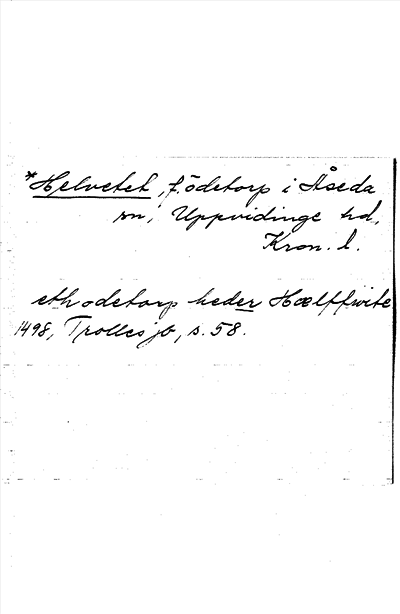 *Helvetet, f. ödetorp i Åseda
sn, Uppvidinge hd,
Kron. l.
eth odetorp heder Hælffwite
1498, Trollesjö, s. 58.